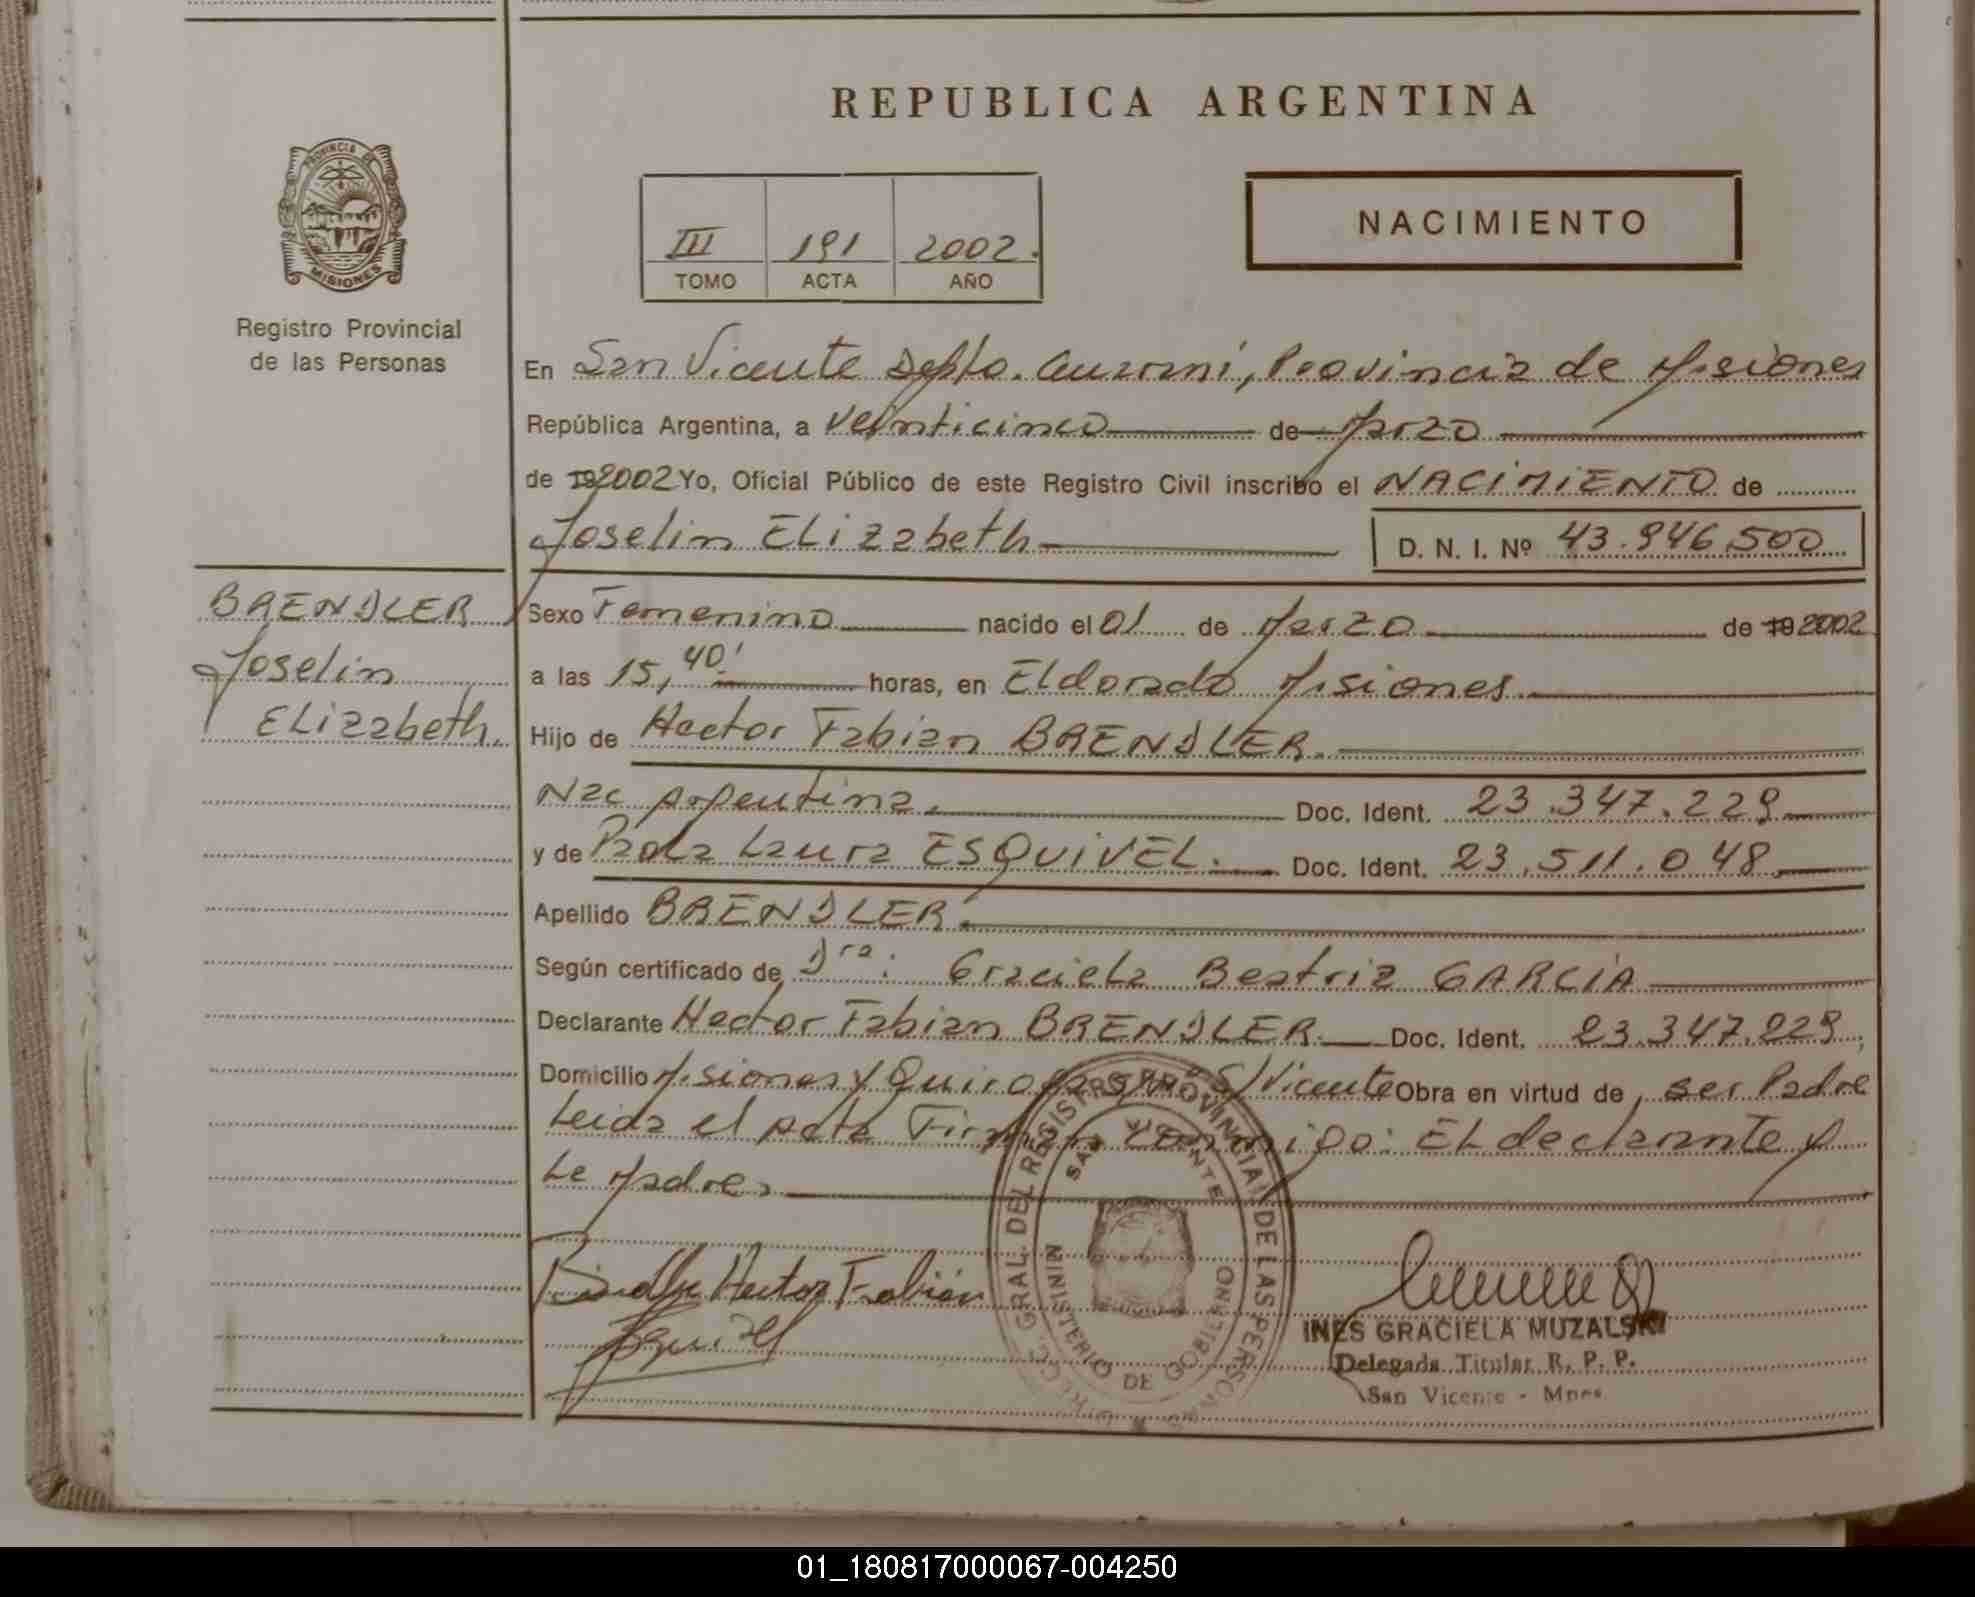 REPUBLICA ARGENTINA
PROVINCIA DE
MISIONES
Registro Provincial
de las Personas
III 191 2002.
TOMO ACTA AÑO
NACIMIENTO
En San Vicente Depto. Guaraní, Provincia de Misiones
República Argentina, a Veinticinco de Marzo
de 19 2002 Yo, Oficial Público de este Registro Civil inscribo el NACIMIENTO de
Joselin Elizabeth D. N. I. Nº 43.946.500
BRENDLER
Joselin
Elizabeth.
Sexo Femenino nacido el 01 de Marzo de 19 2002
a las 15,40' horas, en Eldorado Misiones
Hijo de Hector Fabian BRENDLER.
Nac Argentina. Doc. Ident. 23.347.229
y de Paola Laura ESQUIVEL. Doc. Ident. 23.511.048
Apellido BRENDLER.
Según certificado de Dra: Graciela Beatriz GARCIA
Declarante Hector Fabian BRENDLER. Doc. Ident. 23.347.229,
Domicilio Misiones y Quiroga S/Nº S/Vicente Obra en virtud de ser Padre
Leida el acta Firman conmigo: El declarante y
La Madre
Brendler Hector Fabián
Esquivel
DIRECC. GRAL. DEL REGISTRO PROVINCIAL DE LAS PERSONAS
SAN VICENTE
MINISTERIO DE GOBIERNO
INES GRACIELA MUZALSKI
Delegada Titular R. P. P.
San Vicente - Mnes.
01_180817000067-004250